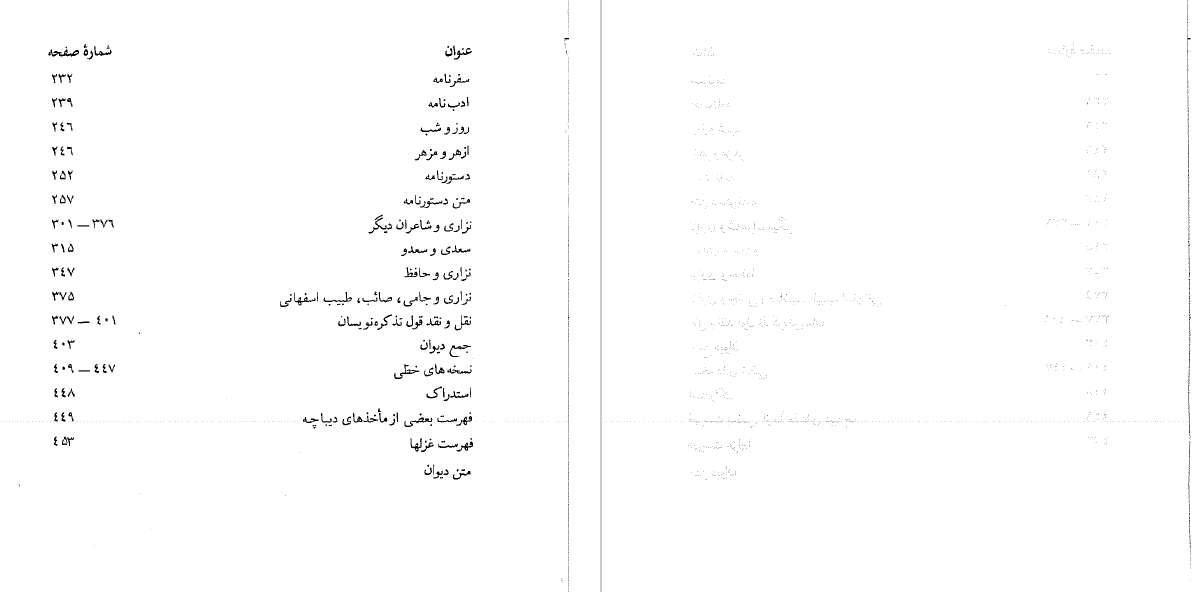 عنوان شمارهٔ صفحه
سفرنامه ۲۳۲
ادب‌نامه ۲۳۹
روز و شب ۲٤٦
ازهر و مزهر ۲٤٦
دستورنامه ۲۵۲
متن دستورنامه ۲۵۷
نزاری و شاعران دیگر ۳۰۱ — ۳۷٦
سعدی و سعدو ۳۱۵
نزاری و حافظ ۳٤۷
نزاری و جامی، صائب، طبیب اسفهانی ۳۷۵
نقل و نقد قول تذکره‌نویسان ۳۷۷ — ٤۰۱
جمع دیوان ٤۰۳
نسخه‌های خطی ٤۰۹ — ٤٤۷
استدراک ٤٤۸
فهرست بعضی از مأخذهای دیباچه ٤٤۹
فهرست غزلها ٤۵۳
متن دیوان